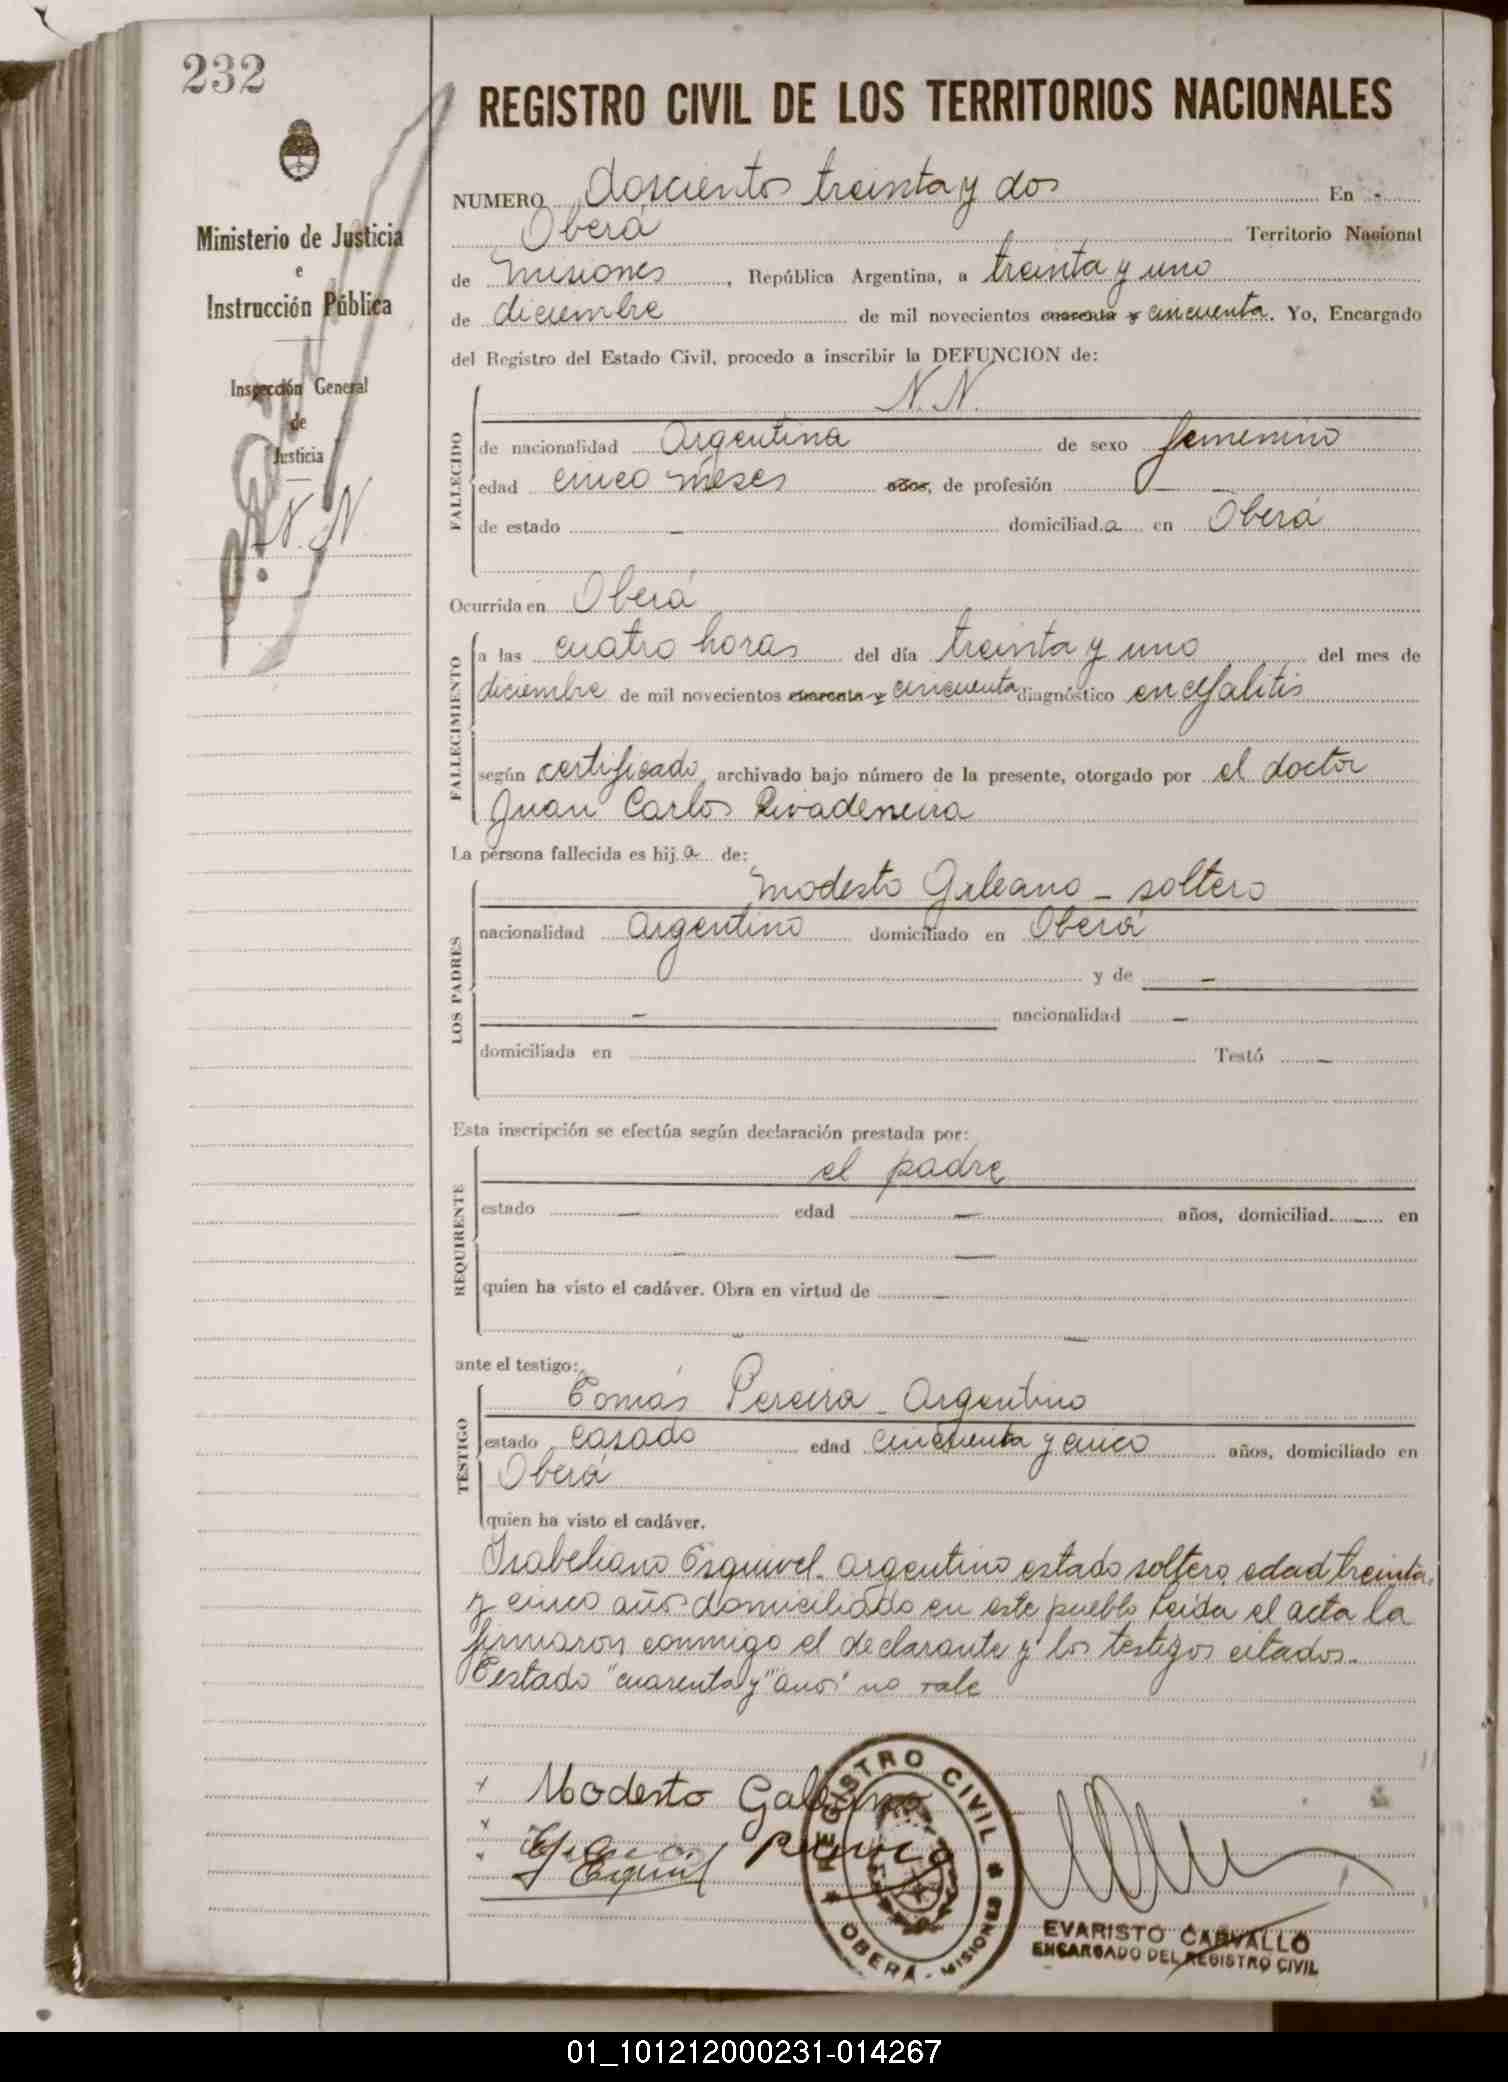 232
REGISTRO CIVIL DE LOS TERRITORIOS NACIONALES
Ministerio de Justicia
e
Instrucción Pública
Inspección General
de
Justicia
N. N.
NUMERO doscientos treinta y dos En -
Oberá Territorio Nacional
de Misiones, República Argentina, a treinta y uno
de diciembre de mil novecientos cuarenta y cincuenta. Yo, Encargado
del Registro del Estado Civil, procedo a inscribir la DEFUNCION de:
N. N.
FALLECIDO
de nacionalidad Argentina de sexo femenino
edad cinco meses años, de profesión -
de estado - domiciliada en Oberá
Ocurrida en Oberá
FALLECIMIENTO
a las cuatro horas del día treinta y uno del mes de
diciembre de mil novecientos cuarenta y cincuenta diagnóstico encefalitis
según certificado, archivado bajo número de la presente, otorgado por el doctor
Juan Carlos Rivadeneira
La persona fallecida es hija de:
LOS PADRES
Modesto Galeano - soltero
nacionalidad Argentino domiciliado en Oberá
y de -
- nacionalidad -
domiciliada en Testó -
Esta inscripción se efectúa según declaración prestada por:
REQUIRENTE
el padre
estado - edad - años, domiciliad - en
- -
quien ha visto el cadáver. Obra en virtud de -
- -
ante el testigo:
TESTIGO
Tomás Pereira - Argentino
estado casado edad cincuenta y cinco años, domiciliado en
Oberá
quien ha visto el cadáver.
Isabeliano Esquivel. argentino estado soltero edad treinta
y cinco años domiciliado en este pueblo Leida el acta la
firmaron conmigo el declarante y los testigos citados.-
Testado "cuarenta y" "años" no vale
Modesto Galeano
Esquivel
REGISTRO CIVIL
OBERÁ - MISIONES
EVARISTO CARVALLO
ENCARGADO DEL REGISTRO CIVIL
01_101212000231-014267